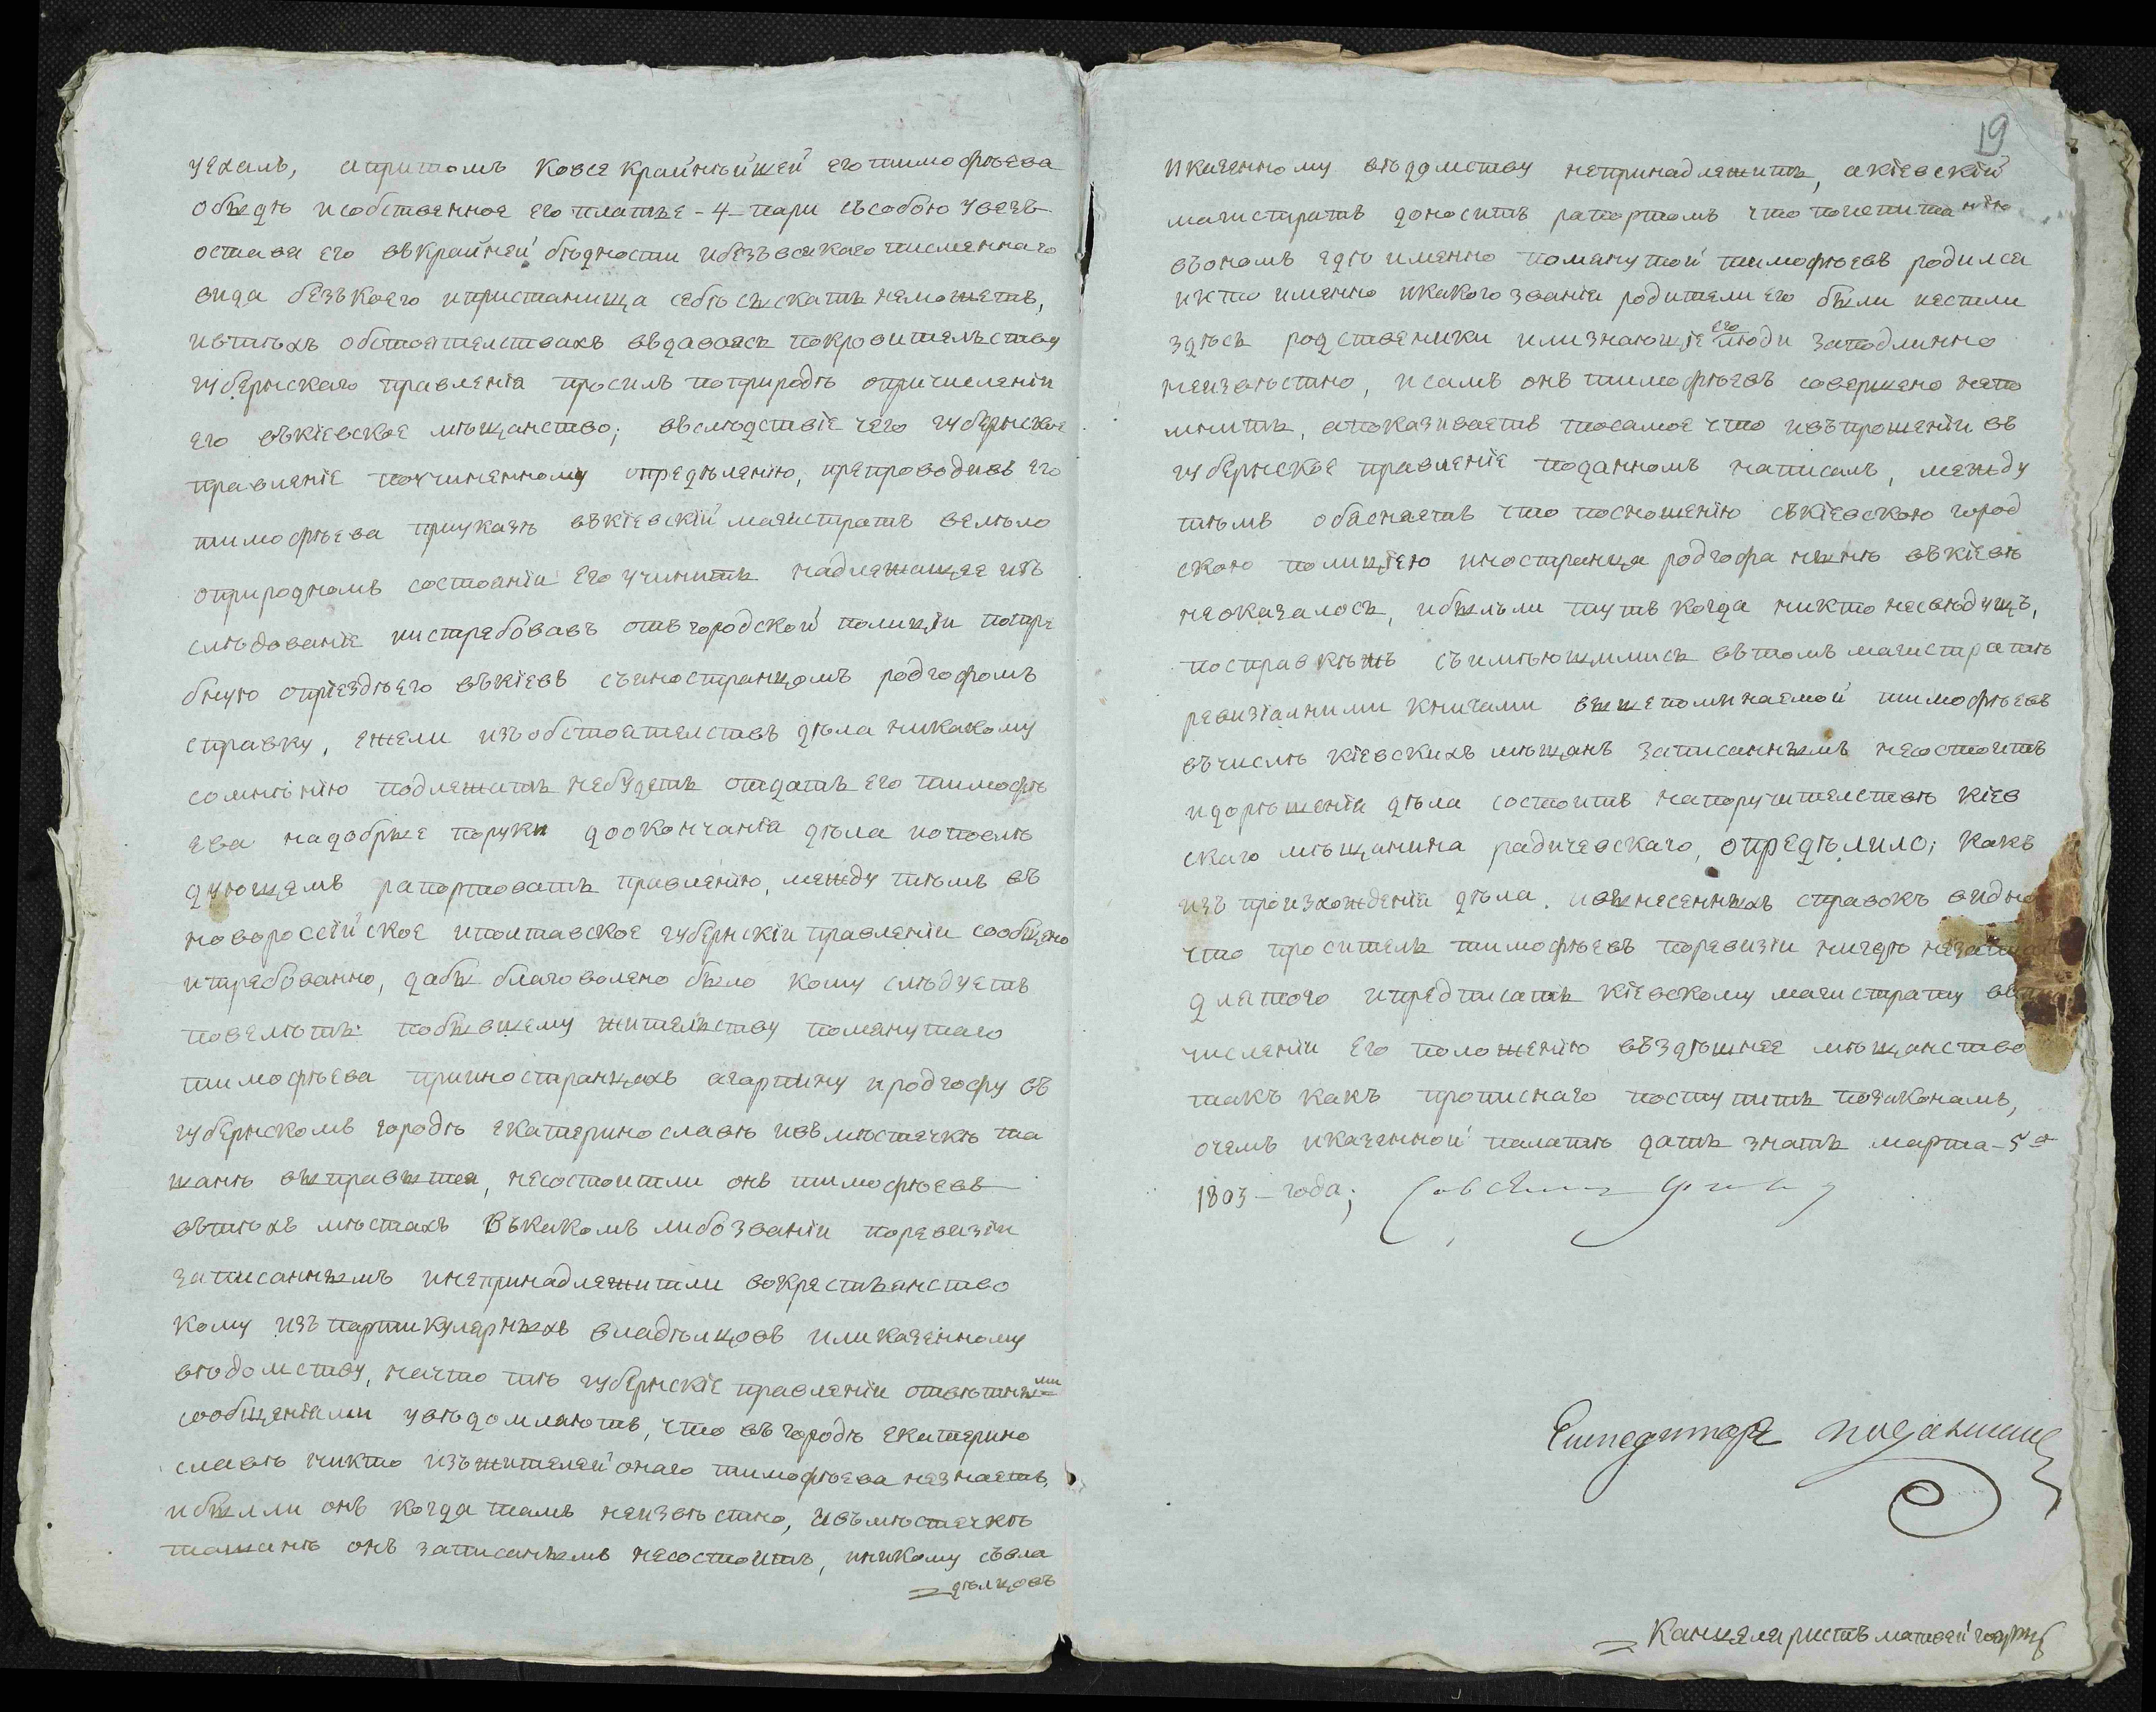 уехалъ, апритомъ ковсе крайнѣйшей его тимофѣева
обыдѣ исобственное его платье - 4 - пари съсобою увезъ
остава его вкрайней бѣдности ибезъвсякаго писменнаго
вида безъкоего ипристанища себѣ сыскать неможетъ,
ивтѣхъ обстоятелствахъ вдаваясь покровителству
губернскаго правленія просилъ поприродѣ опричисленіи
его въкіевское мѣщанство; вслѣдствіе чего губернское
правленіе поучиненному опредѣленію, препроводивъ его
тимофѣева приуказѣ въкіевскій магистратъ велѣло
оприродномъ состояніи его учинить надлежащее из
слѣдованіе иистребовавъ отъ городской полиціи потре
бную опріездѣего въкіевъ съиностранцомъ родгофомъ
справку, ежели изъобстоятелствъ дѣла никакому
сомнѣнію подлежать небудетъ отдать его тимофѣ
ева надобрые поруки доокончанія дѣла ипослѣ
дующемъ рапортовать правленію, между тѣмъ въ
новороссійское иполтавское губернскіи правленіи сообщено
итребованно, дабы благоволено было кому слѣдуетъ
повелѣть побывшему жителству помянутаго
тимофѣева прииностранцахъ агартину иродгофу въ
губернскомъ городѣ екатеринославѣ ивъ мѣстечкѣ та
шанѣ выправытся, несостоитли онъ тимофѣевъ
вътѣхъ мѣстахъ въкакомъ либозваніи поревизіи
записаннымъ инепринадлежитли вокрестьянство
кому изъ партикулярныхъ владѣлцовъ иликазенному
вѣдомству, начто тѣ губернскіе правленіи отвѣтными
сообщеніями увѣдомляютъ, что въ городѣ екатерино
славѣ никто изъжителей онаго тимофѣева незнаетъ,
ибылли онъ когда тамъ неизвѣстно, ивъмѣстечкѣ
ташанѣ онъ записанымъ несостоитъ, иникому съвла
дѣлцовъ
19
иказенному вѣдомству непринадлежитъ, акіевскій
магистратъ доноситъ рапортомъ что поиспитанію
въономъ гдѣ именно помянутой тимофѣевъ родился
икто именно икакого званія родители его были иестли
здѣсь родственики илизнающіе его люди заподлинно
неизвѣстно, исамъ онъ тимофѣевъ совершено непо
мнитъ, апоказиваетъ тосамое что ивъпрошеніи въ
губернское правленіе поданномъ написалъ, между
тѣмъ объясняетъ что посношенію съкіевскою город
скою полиціею иностранца родгофа нынѣ въкіевѣ
неоказалось, ибылъли тутъ когда никто несвѣдущъ,
посправкѣжъ съимѣющимись втомъ магистратѣ
ревизіалними книгами вышепоминаемой тимофѣевъ
въчислѣ кіевскихъ мѣщанъ записаннымъ несостоитъ
идорѣшенія дѣла состоитъ напоручителствѣ кіев
скаго мѣщанина радичевскаго, опредѣлило; какъ
изъ произхожденія дѣла. ивынесенныхъ справокъ видно
что проситель тимофѣевъ поревизіи нигдѣ
длятого ипредписать кіевскому магистрату
численіи его положенію въздѣшнее мѣщанство
такъ какъ прописнаго поступить позаконамъ,
очемъ иказенной палатѣ дать знать марта - 5 го
1803 - года;
Канцеляристъ матвей